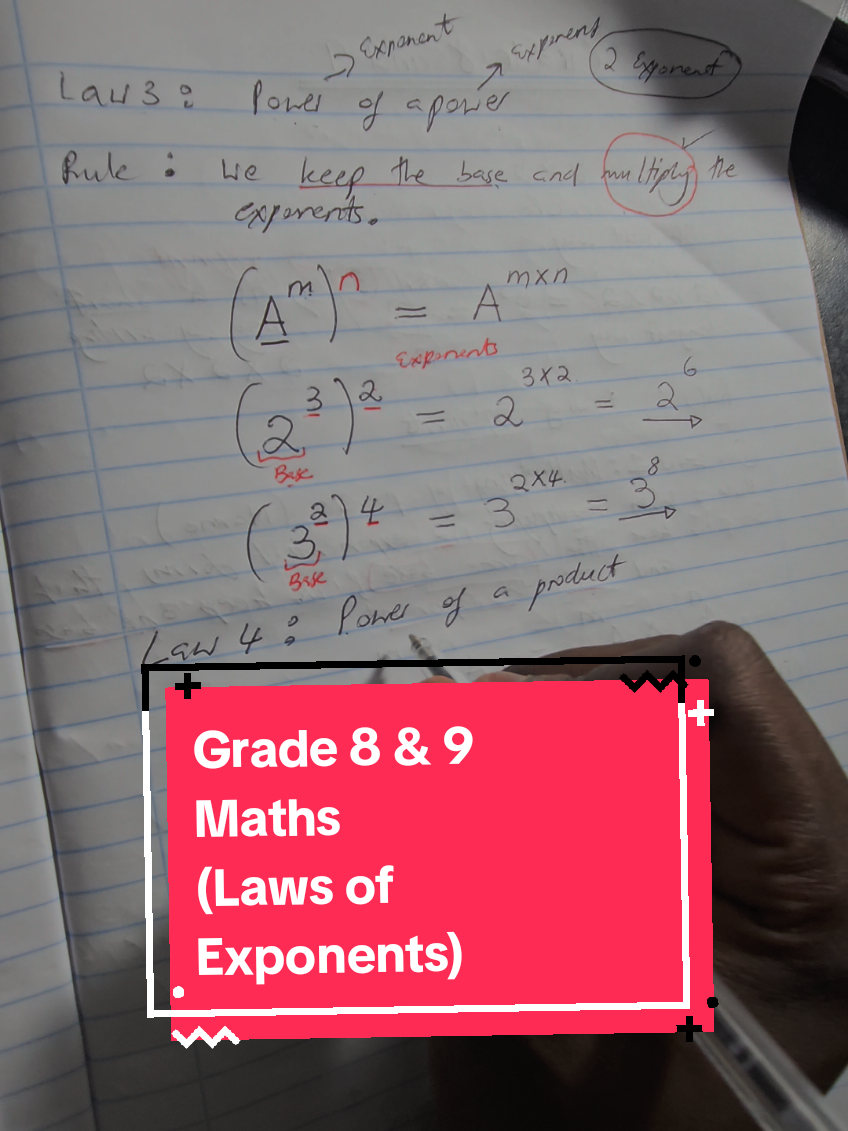 Exponent
exponent
2 Exponent
Law 3 : Power of a power
Rule : We keep the base and multiply the
exponents.
(A^m)^n = A^(m×n)
Exponents
(2^3)^2 = 2^(3×2) = 2^6
Base
(3^2)^4 = 3^(2×4) = 3^8
Base
Law 4 : Power of a product
Grade 8 & 9
Maths
(Laws of
Exponents)